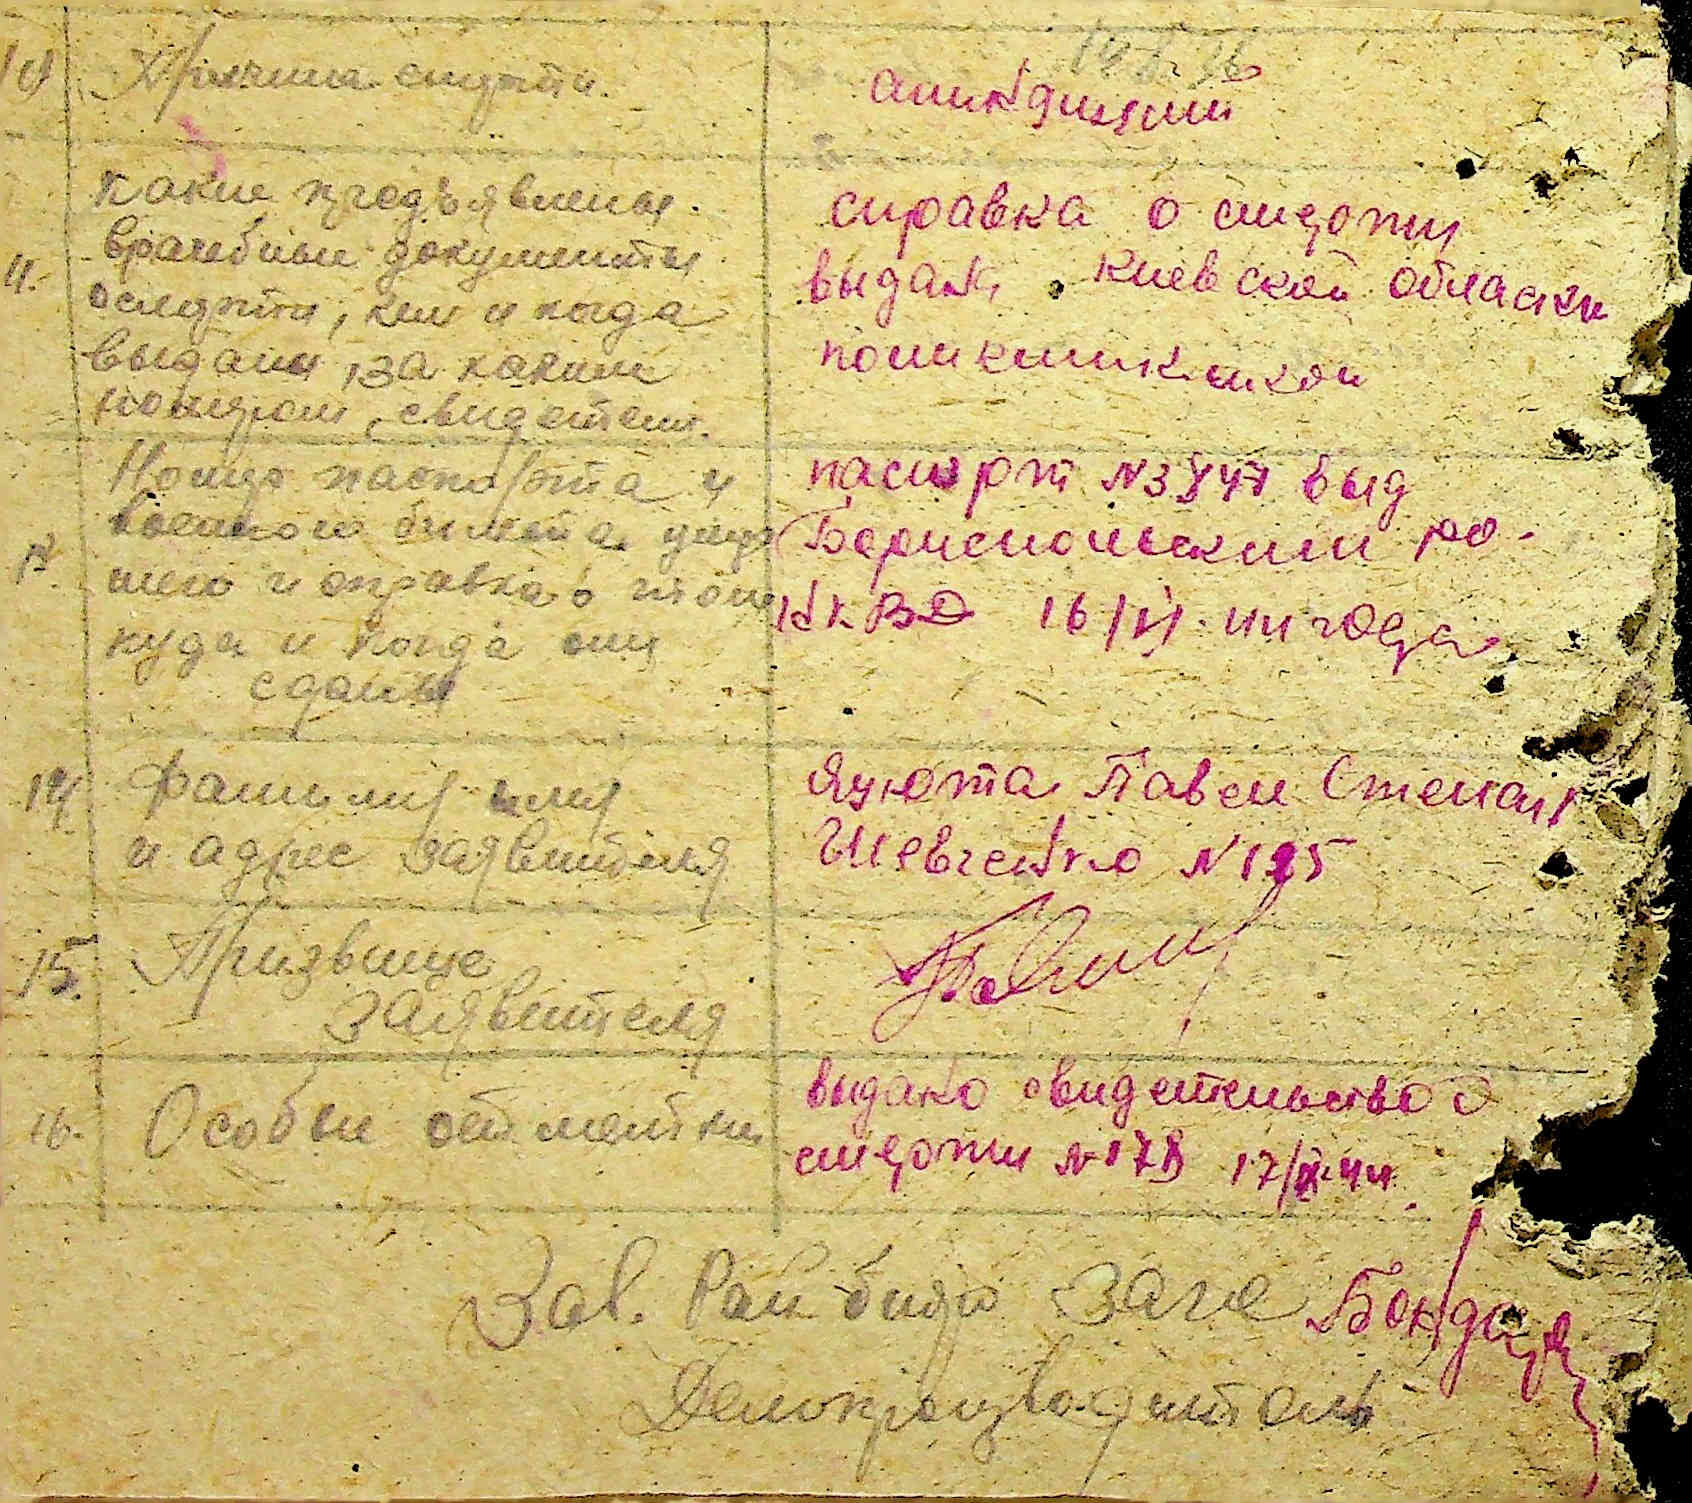 Причина смерти.
апиндицит
Какие предъявлены
врачебные документы
о смерти, кем и когда
выданы, за каким
номером, свидетели.
11.
справка о смерти
выдан. Киевской области
поликлиникой
Номер паспорта и
военного билета умер
шего и справка о том
куда и когда они
сданы
паспорт №3847 выд
Бориспольским РО-
НКВД 16/VI-44 года
14.
Фамилия имя
и адрес заявителя
Яцюта Павел Степан
Шевченко №125
15.
Призвище
заявителя
16.
Особые отметки
выдано свидетельство о
смерти №178 17/ 44
Зав. Рай бюро загс Бондар
Делопроизводитель